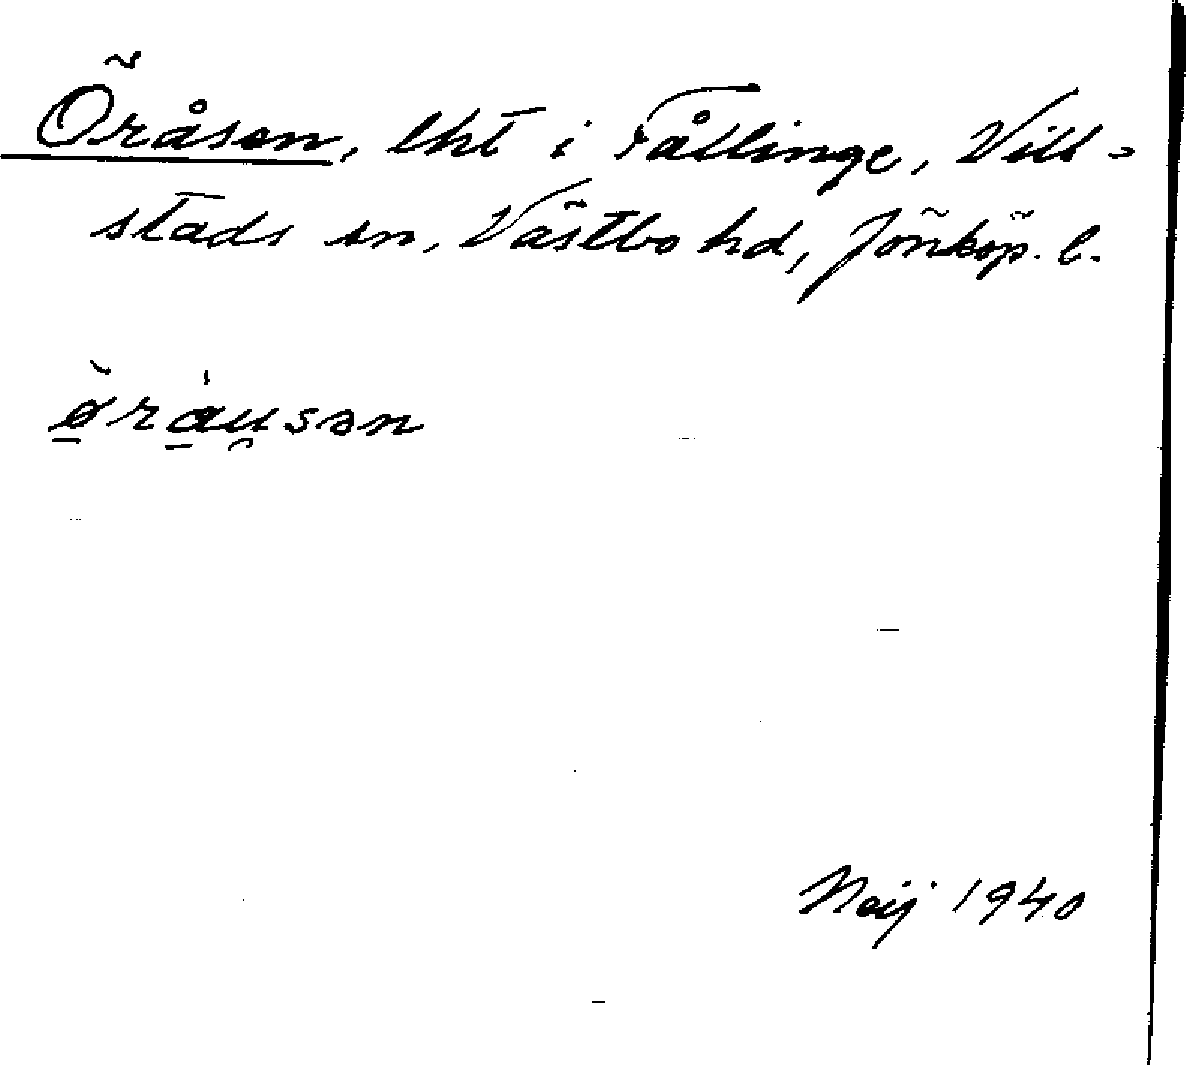 Öråsen, lht i Fållinge, Vill=
stads sn, Västbo hd, Jönköp. l.
ø̠̀rá̠u̯sən
Neij 1940